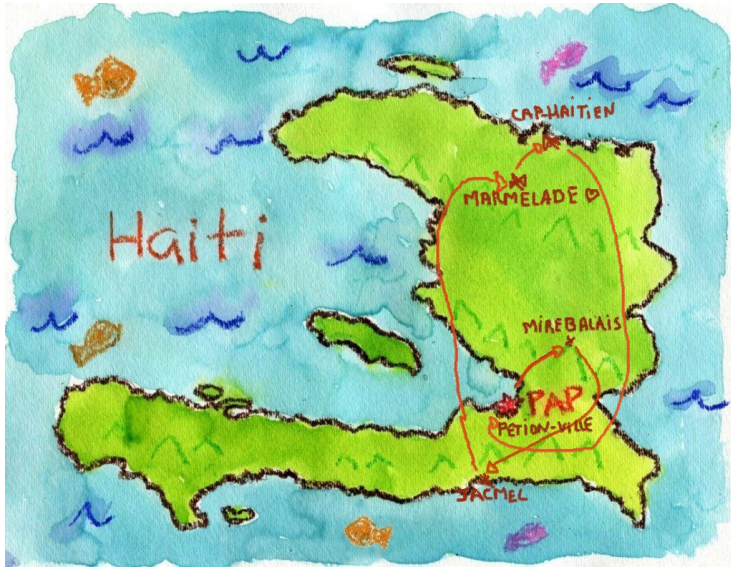 CAP-HAITIEN
MARMELADE
Haiti
MIREBALAIS
PAP
PETION-VILLE
JACMEL